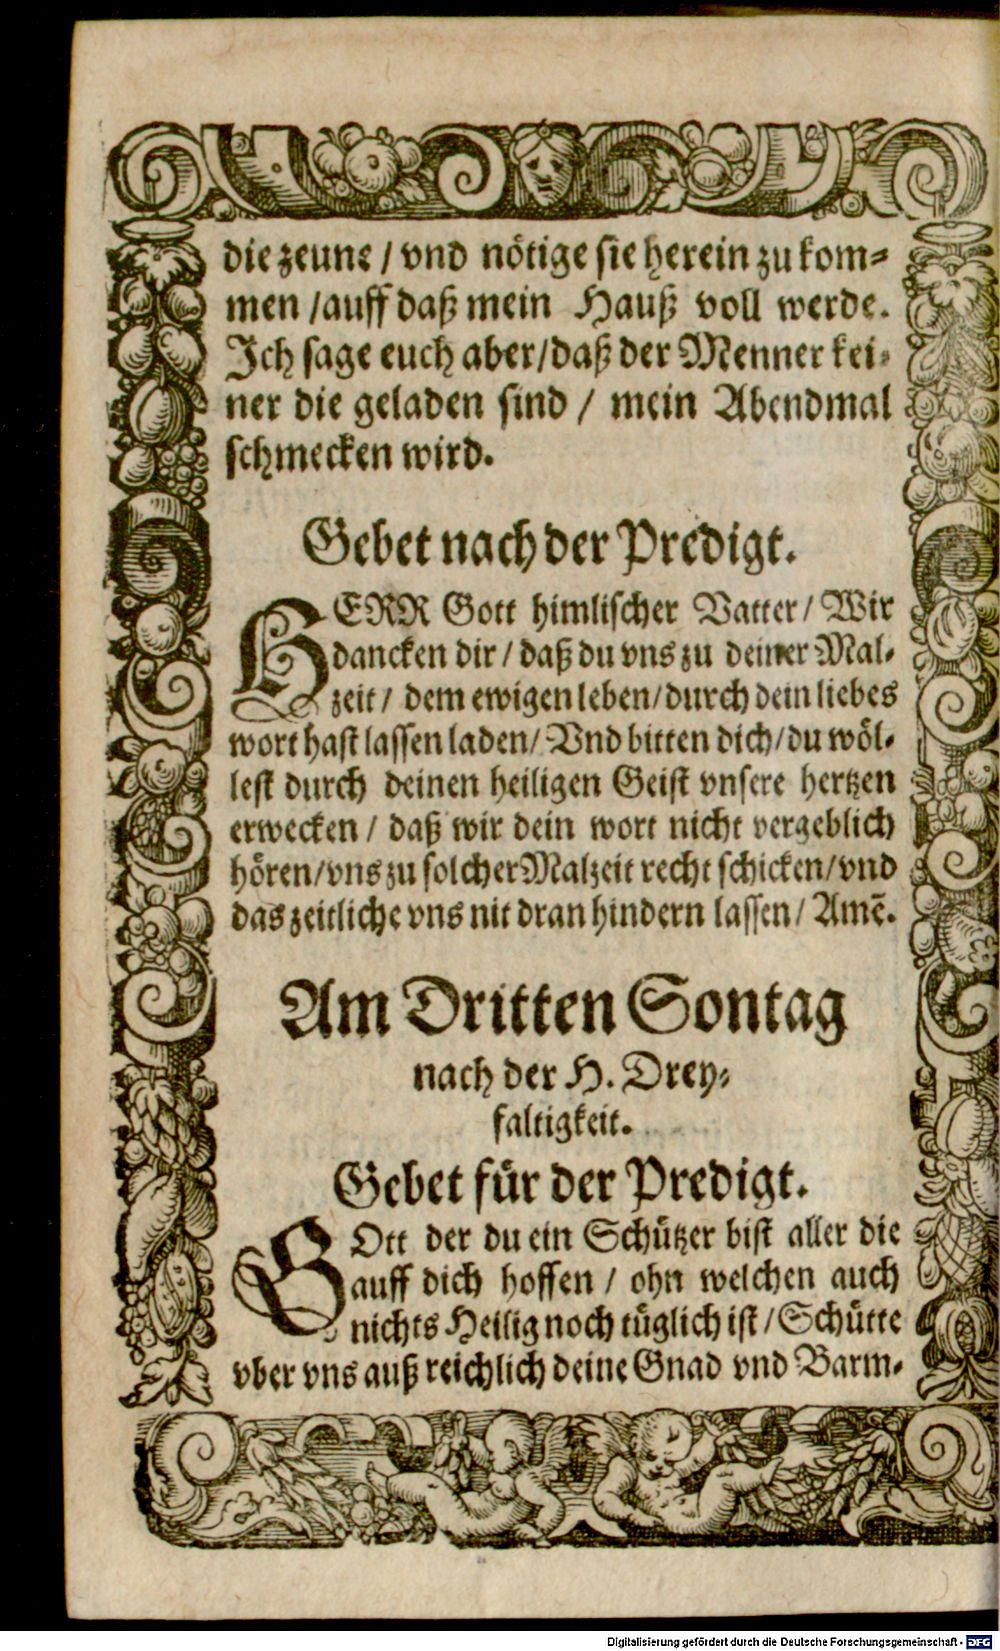 die zeune / vnd nötige sie herein zu kom⸗
men / auff daß mein Hauß voll werde.
Ich sage euch aber / daß der Menner kei⸗
ner die geladen sind / mein Abendmal
schmecken wird.
Gebet nach der Predigt.
HERR Gott himlischer Vatter / Wir
dancken dir / daß du vns zu deiner Mal⸗
zeit / dem ewigen leben / durch dein liebes
wort hast lassen laden / Vnd bitten dich / du wöl⸗
lest durch deinen heiligen Geist vnsere hertzen
erwecken / daß wir dein wort nicht vergeblich
hören / vns zu solcher Malzeit recht schicken / vnd
das zeitliche vns nit dran hindern lassen / Amẽ.
Am Dritten Sontag
nach der H. Drey⸗
faltigkeit.
Gebet für der Predigt.
GOtt der du ein Schützer bist aller die
auff dich hoffen / ohn welchen auch
nichts Heilig noch tüglich ist / Schütte
vber vns auß reichlich deine Gnad vnd Barm⸗
Digitalisierung gefördert durch die Deutsche Forschungsgemeinschaft - DFG